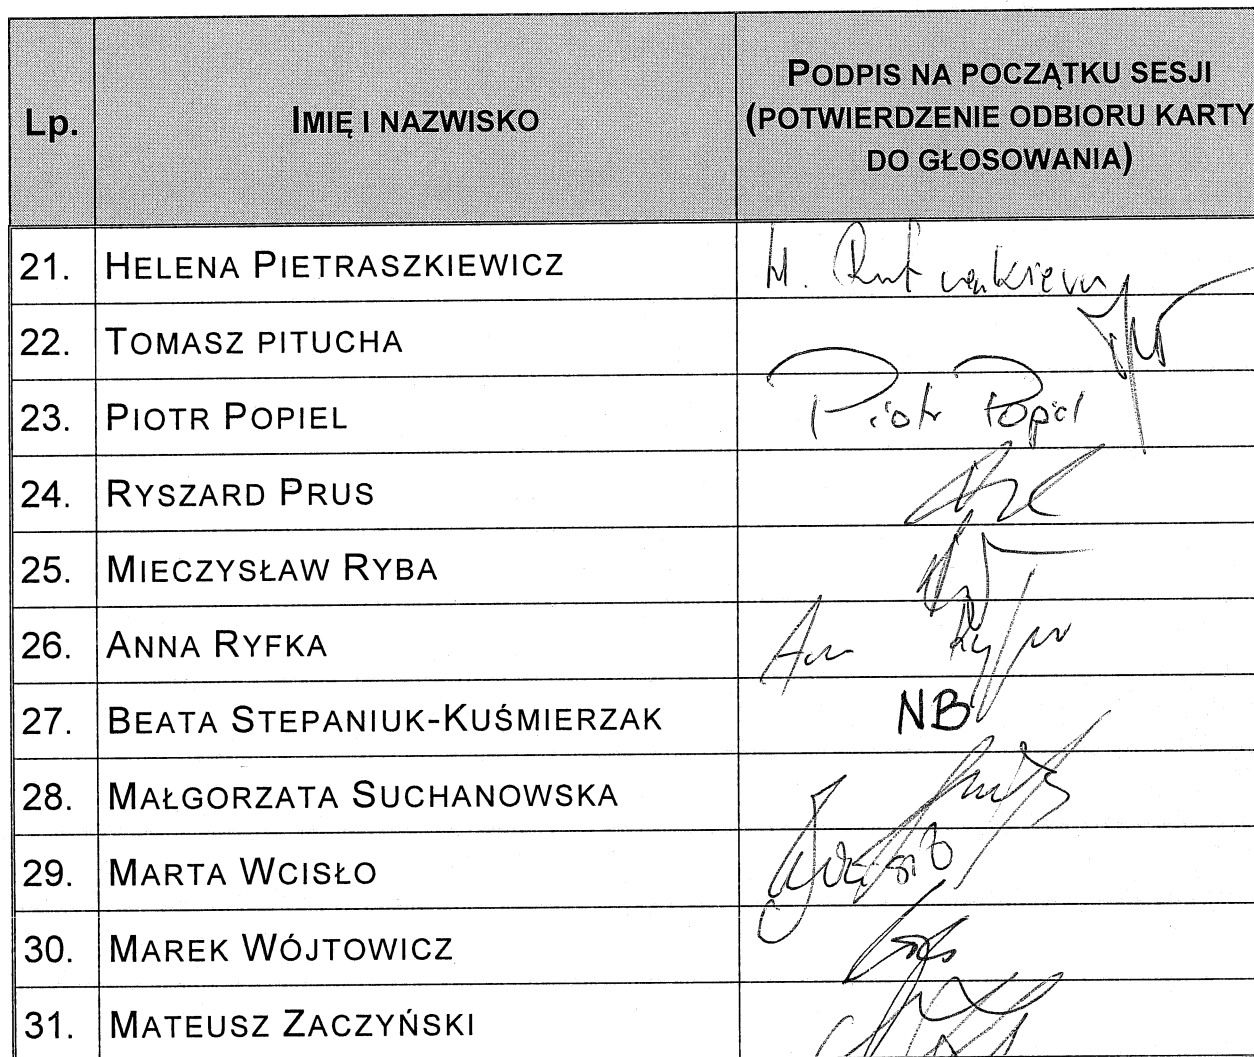 Lp.
IMIĘ I NAZWISKO
PODPIS NA POCZĄTKU SESJI
(POTWIERDZENIE ODBIORU KARTY
DO GŁOSOWANIA)
21. HELENA PIETRASZKIEWICZ H.
22. TOMASZ PITUCHA
23. PIOTR POPIEL Piotr Popiel
24. RYSZARD PRUS
25. MIECZYSŁAW RYBA
26. ANNA RYFKA
27. BEATA STEPANIUK-KUŚMIERZAK NB
28. MAŁGORZATA SUCHANOWSKA
29. MARTA WCISŁO
30. MAREK WÓJTOWICZ
31. MATEUSZ ZACZYŃSKI